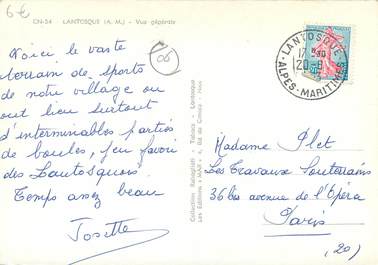 6€
CN-54 LANTOSQUE (A. M.) - Vue générale
06
Voici le vaste
terrain de sports
de notre village ou
ont lieu surtout
d'interminables parties
de boules, jeu favori
des Lantosquois.
Temps assez beau
Josette
Collection Rataglisti - Tabacs - Lantosque
Les Editions "MAR" Bd de Cimiez - Nice
LANTOSQUE
ALPES-MARITIMES
Madame Plet
Les Travaux Souterrains
36 bis avenue de l'Opéra
Paris
(20)